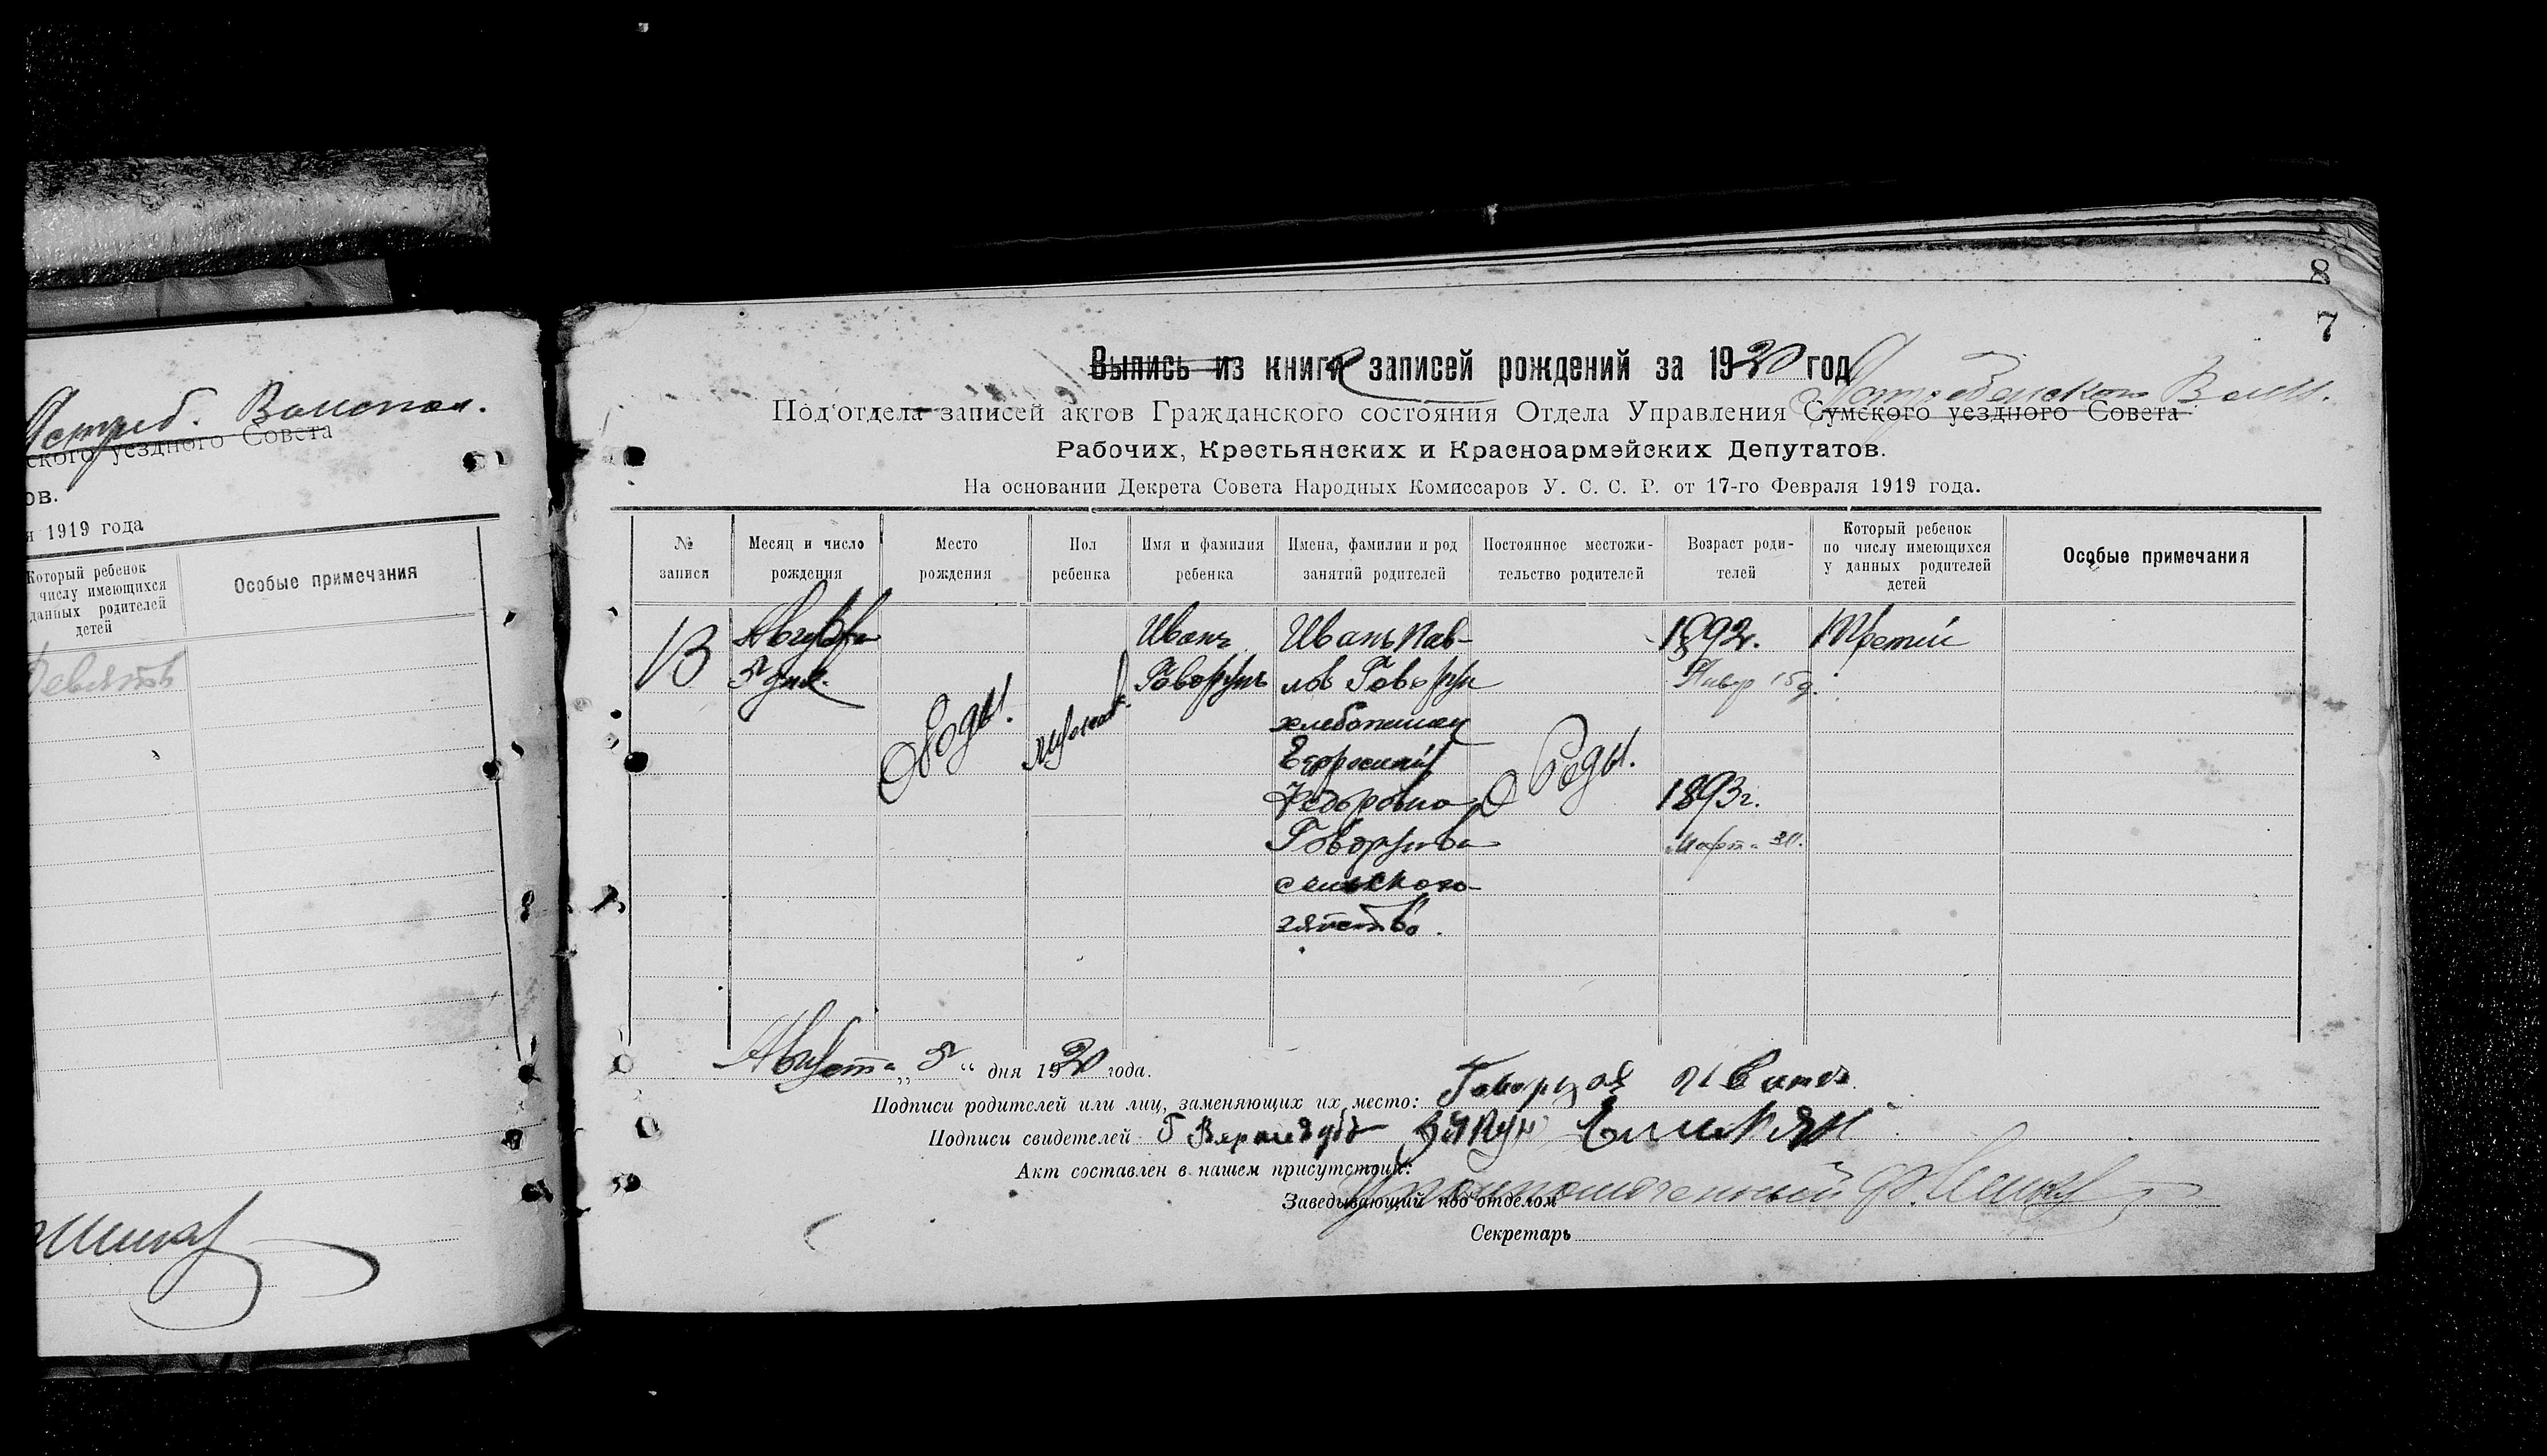 Ястреб. Волостн.
ского уездного Совета
ов.
я 1919 года
Который ребенок
числу имеющихся
данных родителей
детей
Особые примечания
8
7
Выпись из книги записей рождений за 1920 год
Ястребенского Волл.
Под‘отдела записей актов Гражданского состояния Отдела Управления Сумского уездного Совета
Рабочих, Крестьянских и Красноармейских Депутатов.
На основании Декрета Совета Народных Комиссаров У. С. С. Р. от 17-го Февраля 1919 года.
№
записи
Месяц и число
рождения
Место
рождения
Пол
ребенка
Имя и фамилия
ребенка
Имена, фамилии и род
занятий родителей
Постоянное местожи-
тельство родителей
Возраст роди-
телей
Который ребенок
по числу имеющихся
у данных родителей
детей
Особые примечания
13
Августа
5 дня
Иванъ
Говорунъ
Иванъ Пав-
лов Говорун
хлебопашец
Федоровна
Говорунова
1892г.
Январ 15 д.
1893г.
Марта 31.
Третий
Августа „ 5 “ дня 1920 года.
Подписи родителей или лиц, заменяющих их место:
Подписи свидетелей
Акт составлен в нашем присутствии:
Заведывающий под‘отделом Уполномоченный
Секретарь